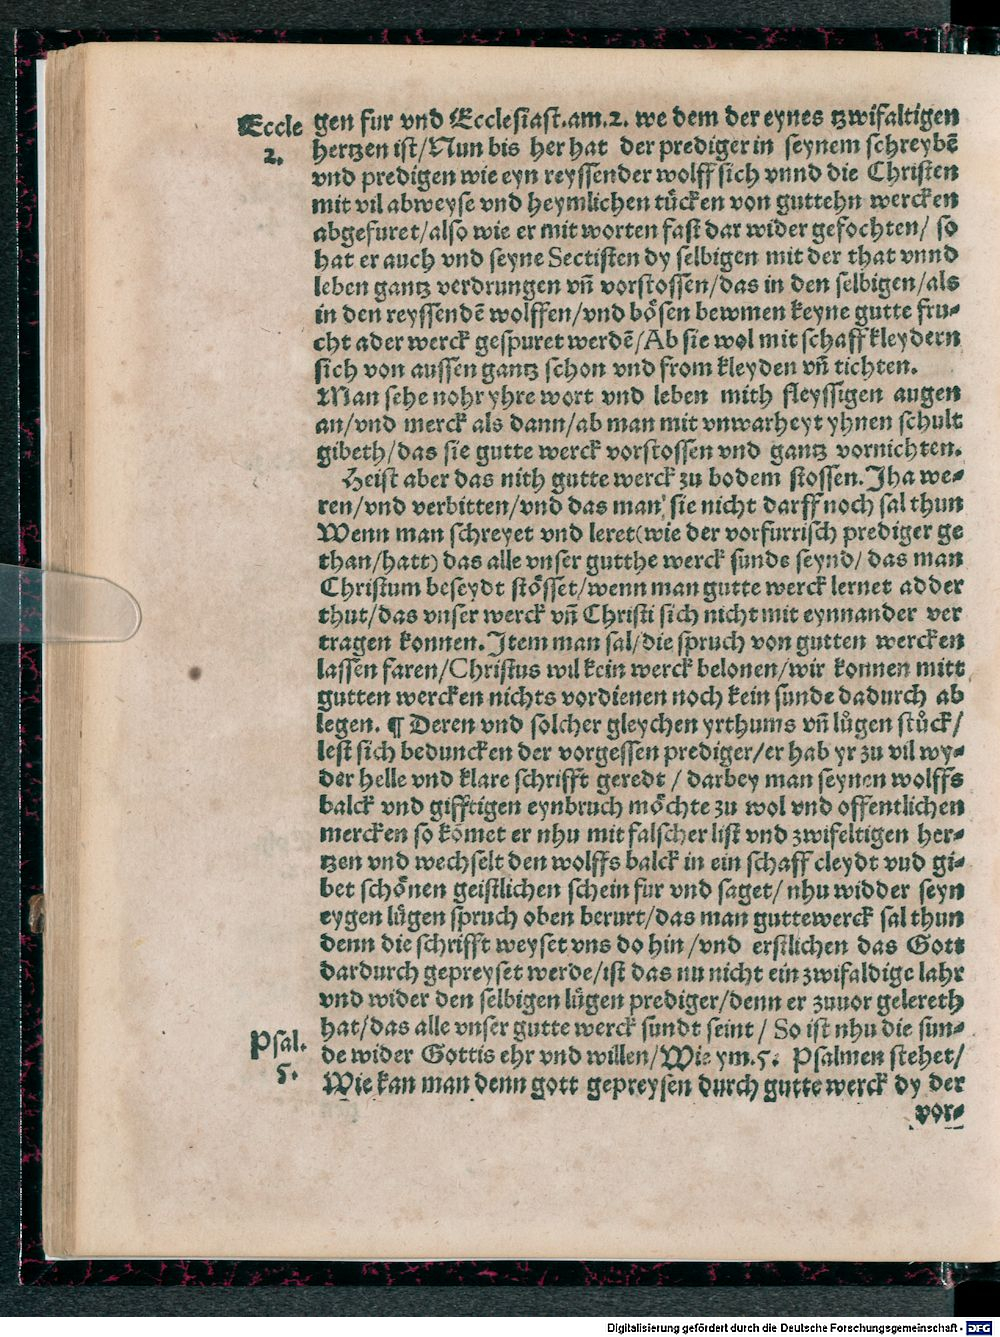 Eccle
2.
gen fur vnd Ecclesiast.am.2. we dem der eynes tzwifaltigen
hertzen ist/Nun bis her hat der prediger in seynem schreybē
vnd predigen wie eyn reyssender wolff sich vnnd die Christen
mit vil abweyse vnd heymlichen tücken von guttehn wercken
abgefuret/also wie er mit worten fast dar wider gefochten/ so
hat er auch vnd seyne Sectisten dy selbigen mit der that vnnd
leben gantz verdrungen vn̄ vorstossen/das in den selbigen/als
in den reyssendē wolffen/vnd bösen bewmen keyne gutte fru-
cht ader werck gespuret werdē/Ab sie wol mit schaff kleydern
sich von aussen gantz schon vnd from kleyden vn̄ tichten.
Man sehe nohr yhre wort vnd leben mith fleyssigen augen
an/vnd merck als dann/ab man mit vnwarheyt yhnen schult
gibeth/das sie gutte werck vorstossen vnd gantz vornichten.
Heist aber das nith gutte werck zu bodem stossen. Jha we-
ren/vnd verbitten/vnd das man sie nicht darff noch sal thun
Wenn man schreyet vnd leret(wie der vorfurrisch prediger ge
than/hatt) das alle vnser gutthe werck sunde seynd/ das man
Christum beseydt stösset/wenn man gutte werck lernet adder
thut/das vnser werck vn̄ Christi sich nicht mit eynnander ver
tragen konnen. Jtem man sal/die spruch von gutten wercken
lassen faren/Christus wil kein werck belonen/wir konnen mitt
gutten wercken nichts vordienen noch kein sunde dadurch ab
legen. ¶ Deren vnd solcher gleychen yrthums vn̄ lůgen stůck/
lest sich beduncken der vorgessen prediger/er hab yr zu vil wy-
der helle vnd klare schrifft geredt / darbey man seynen wolffs
balck vnd gifftigen eynbruch möchte zu wol vnd offentlichen
mercken so kōmet er nhu mit falscher list vnd zwifeltigen her-
tzen vnd wechselt den wolffs balck in ein schaff cleydt vud gi-
bet schönen geistlichen schein fur vnd saget/ nhu widder seyn
eygen lůgen spruch oben berurt/das man guttewerck sal thun
denn die schrifft weyset vns do hin /vnd erstlichen das Gott
dardurch gepreyset werde/ist das nu nicht ein zwifaldige lahr
vnd wider den selbigen lůgen prediger/denn er zuuor gelereth
hat/das alle vnser gutte werck sundt seint / So ist nhu die sun-
Psal.
5.
de wider Gottis ehr vnd willen/Wie ym.5. Psalmen stehet/
Wie kan man denn gott gepreysen durch gutte werck dy der
vor-
Digitalisierung gefördert durch die Deutsche Forschungsgemeinschaft - DFG